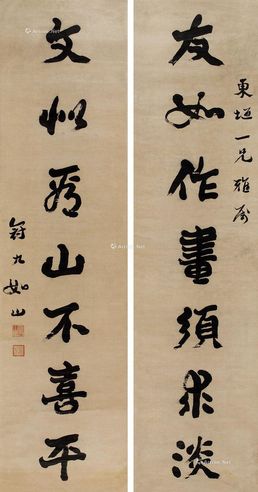 友如作畫須求淡
東垣一兄雅屬
文似看山不喜平
冠九如山